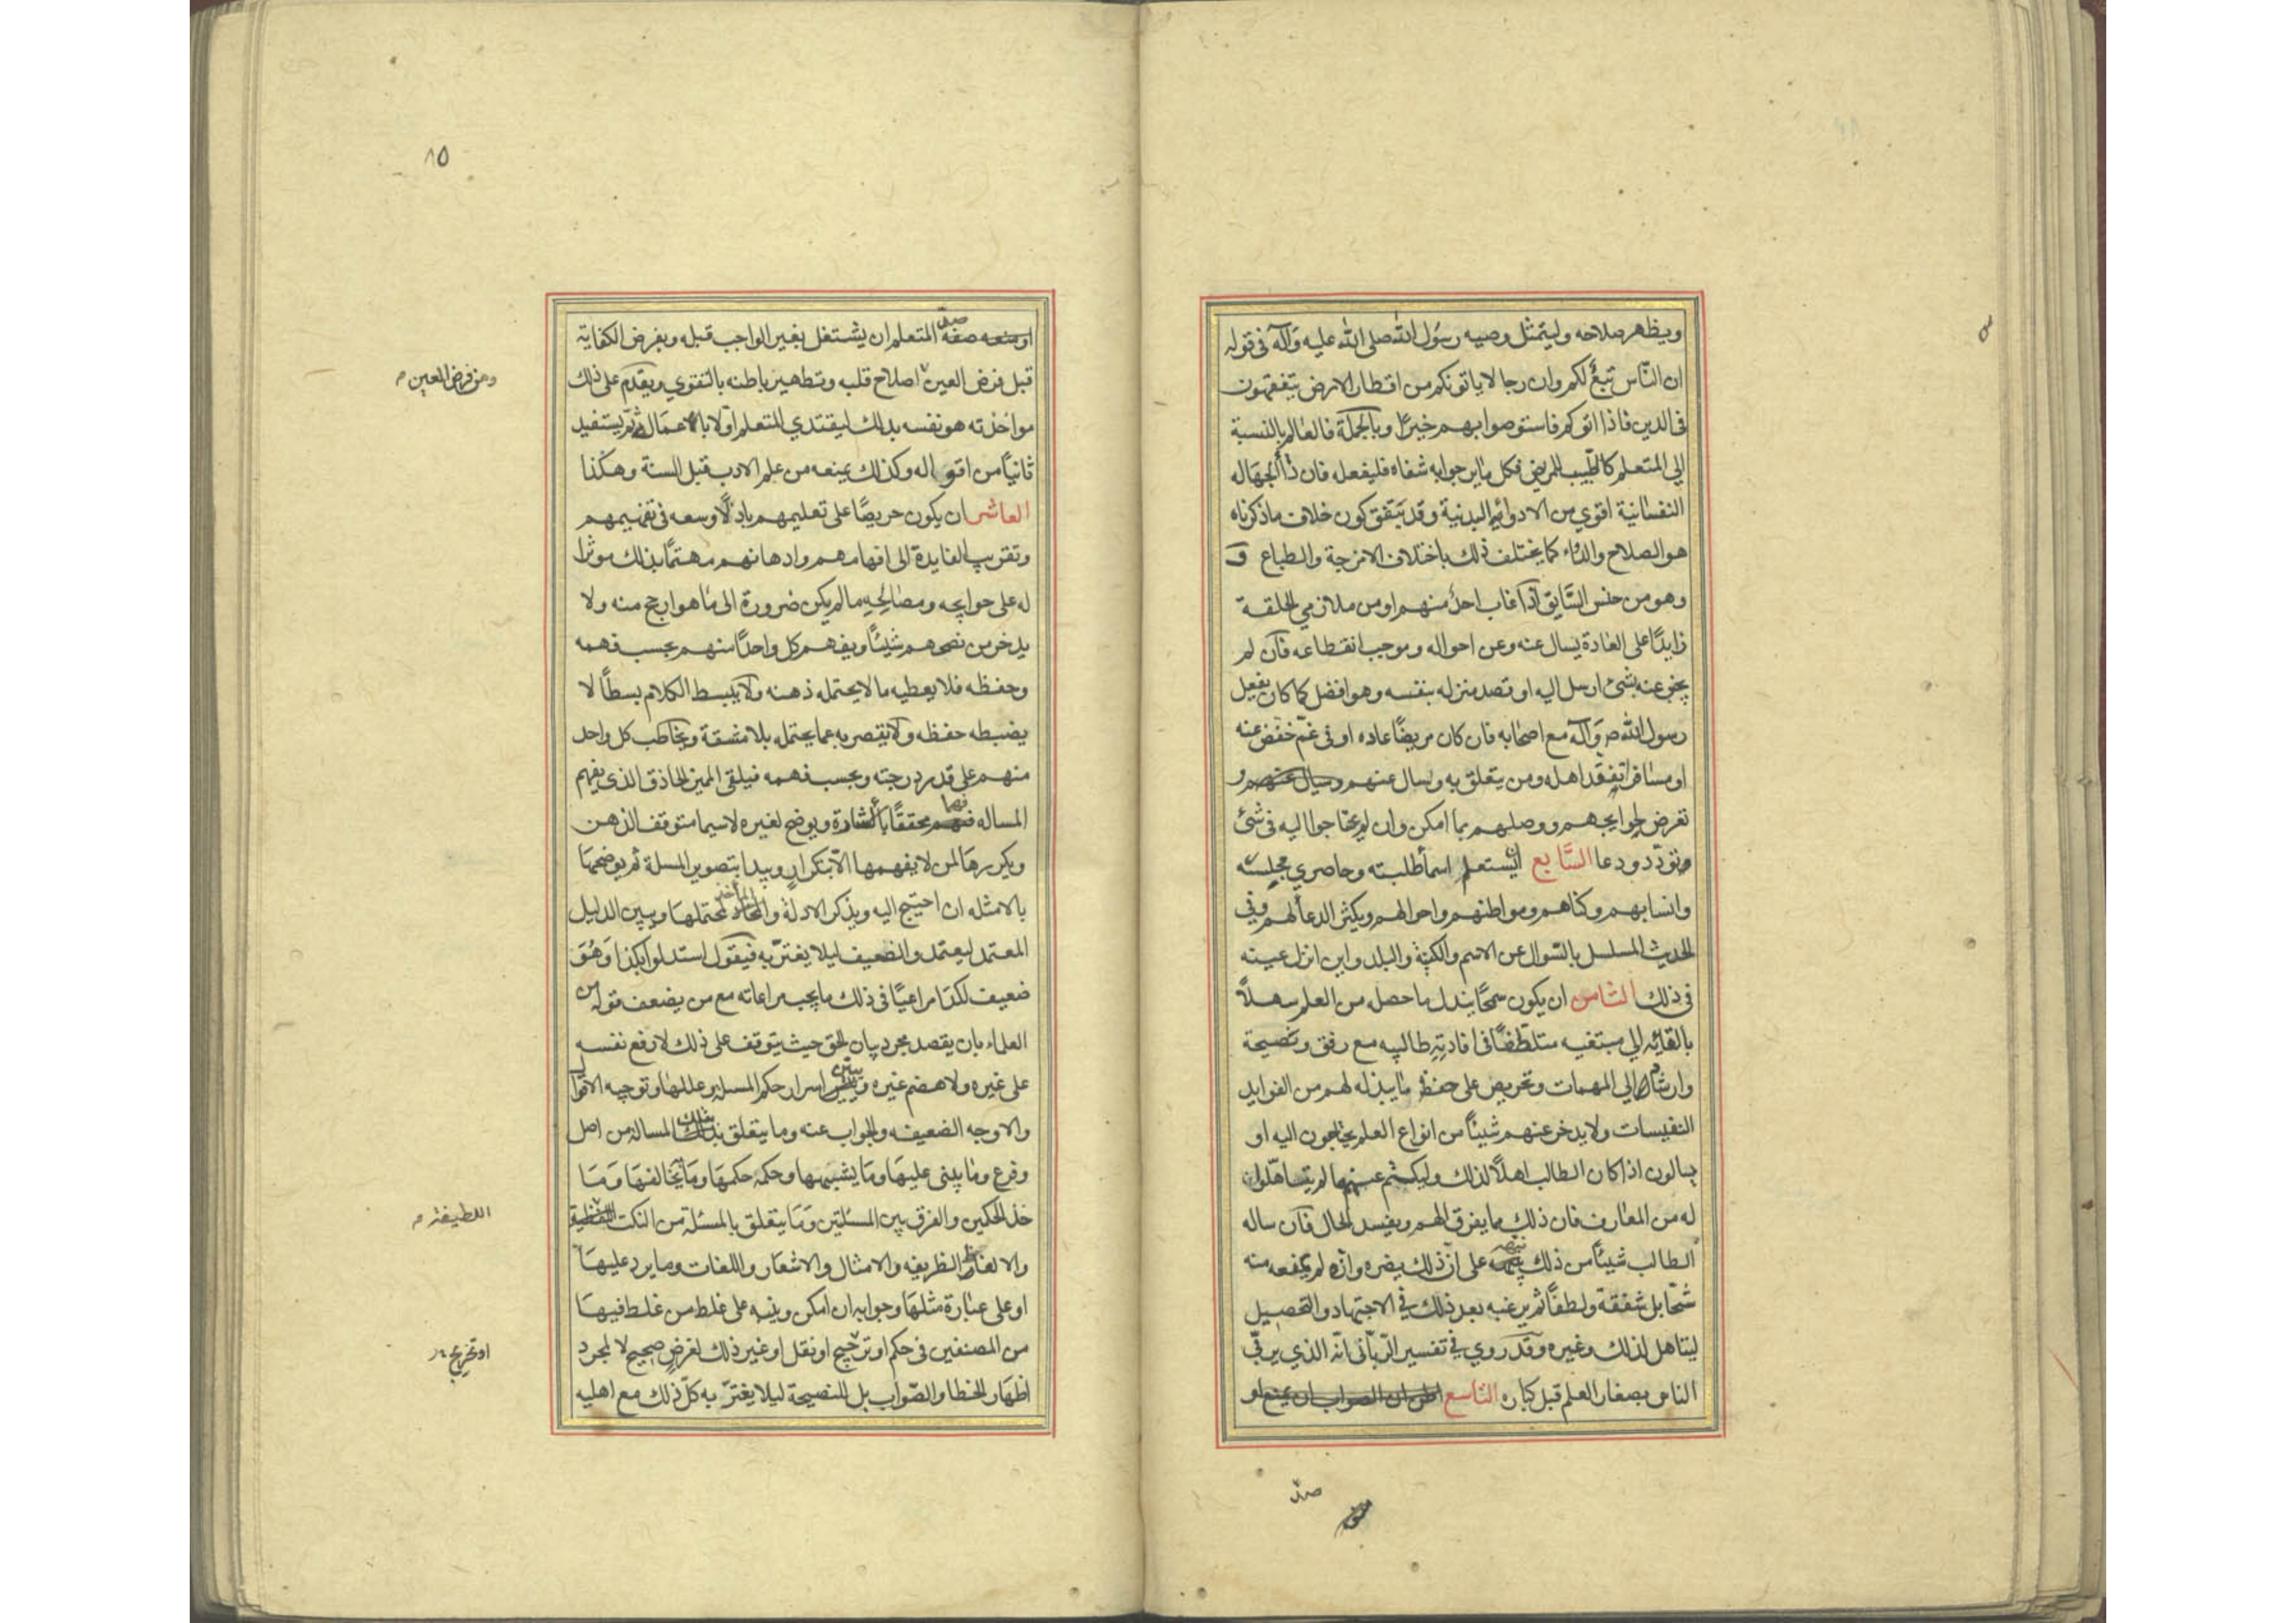 ويظهر صلاحه وليتمثل وصيه رسول الله صلى الله عليه وآله في قوله
ان النّاس تبعٌ لكم وان رجالا ياتونكم من اقطار الارض يتفقهون
في الدين فاذا اتوكم فاستوصوا بهم خيرًا وبالجملة فالعالم بالنسبة
الي المتعلم كالطبيب للمريض فكل ما يرجوا به شفاه فليفعل فان داأ الجهاله
النفسانية اقوي من الادوائ البدنية وقد يتفق كون خلاف ما ذكرناه
هو الصلاح والدواء كما يختلف ذلك باختلاف الامزجة والطباع و
وهو من جنس السّابق اذا غاب احدٌ منهم او من ملازمي الحلقة
زايدًا على العادة يسال عنه وعن احواله وموجب انقطاعه فان لم
يخبر عنه بشئ ارسل اليه او قصد منزله بنفسه وهو افضل كما كان يفعل
رسول الله ص وآله مع اصحابه فان كان مريضًا عاده او في غمّ خفض عنه
او مسافرا تفقد اهله ومن يتعلق به ويسال عنهم ويسال عنهم و
تعرض لحوايجهم ووصلهم بما امكن وان لم يحتاجوا اليه في شئ
تودّد ودعا السّابع ان يستعلم اسماً طلبته وحاضري مجلسه
وانسابهم وكناهم ومواطنهم واحوالهم ويكثر الدعأ لهم وفي
الحديث المسلسل بالسّوال عن الاسم والكنية والبلد واين انزل غنيته
في ذلك الثامن ان يكون سمحًا ببذل ما حصل من العلم سهلاً
بالقائه الي مبتغيه متلطّفًا في افادته طالبيه مع رفق ونصيحة
وارشاد الي المهمات وتحريض على حفظ ما يبذله لهم من الفوايد
النفيسات ولا يدخر عنهم شيئاً من انواع العلم يحتاجون اليه او
يسالون اذا كان الطالب اهلاً لذلك وليكتم عنهم ما لم يتساهلوا
له من المعارف فان ذلك مما يفرق الهم ويفسد الحال فان ساله
الطالب شيئاً من ذلك نبهه على ان ذلك يضره وانه لم يمنعه منه
شحًّا بل شفقة ولطفاً ثم يرغبه بعد ذلك في الاجتهاد والتحصيل
ليتاهل لذلك وغيره وقد روي في تفسير الرّبّاني انّه الذي يربّي
الناس بصغار العلم قبل كباره التاسع
صد
٨٥
صدّ المتعلم ان يشتغل بغير الواجب قبله وبفرض الكفاية
قبل فرض العين اصلاح قلبه وتطهير باطنه بالتقوي ويقدّم على ذلك
وهن فرض العين م
مواخذته هو نفسه بذلك ليقتدي المتعلم اوّلا بالاعمال ثم يستفيد
ثانيًا من اقواله وكذلك يمنعه من علم الادب قبل السنة وهكذا
العاشر ان يكون حريصًا على تعليمهم باذلًا وسعه في تفهيمهم
وتقريب الفايدة الى افهامهم واذهانهم مهتمًا بذلك موثرا
له على حوايجه ومصالحه ما لم يكن ضرورة الى ما هو ارجح منه ولا
يدخر من نصحهم شيئًا ويفهم كل واحدًا منهم بحسب فهمه
وحفظه فلا يعطيه ما لا يحتمله ذهنه ولا يبسط الكلام بسطاً لا
يضبطه حفظه ولا يقصر به عما يحتمله بلا مشقة ويخاطب كل واحد
منهم على قدر درجته وبحسب فهمه فيلقى المميز الحاذق الذي يفهم
المساله فهما محققًا بالاشارة ويوضح لغيره لا سيما متوقف الذهن
ويكررها لمن لا يفهمها الّا بتكرار ويبدا بتصوير المسلة ثم يوضحها
بالامثله ان احتيج اليه ويذكر الادلة والمأخذ لمحتملها ويبين الدليل
المعتمد ليعتمد والضعيف ليلا يغترّ به فيقول استدلوا بكذا وهو
ضعيف لكذا مراعيًا في ذلك ما يجب مراعاته مع من يضعف قوله من
العلماء بان يقصد مجرد بيان الحق حيث يتوقف على ذلك لا رفع نفسه
على غيره ولا هضم غيره ويبيّن اسرار حكم المسلة وعللها وتوجيه الاقوال
والاوجه الضعيفه والجواب عنه وما يتعلق بتلك المسالة من اصل
وفرع وما يبنى عليها وما يشبهها وحكمه حكمها وما يخالفها وما
خذ الحكمين والفرق بين المسئلتين وما يتعلق بالمسئلة من النكت
اللطيفة م
والالغاز الظريفه والامثال والاشعار واللغات وما يرد عليها
او على عبارة مثلها وجوابه ان امكن وينبه على غلط من غلط فيها
من المصنفين في حكم او ترجيح او نقل او غير ذلك لغرض صحيح لا لمجرد
او تخريج
اظهار الخطا والصّواب بل للنصيحة ليلا يغترّ به كلّ ذلك مع اهليه